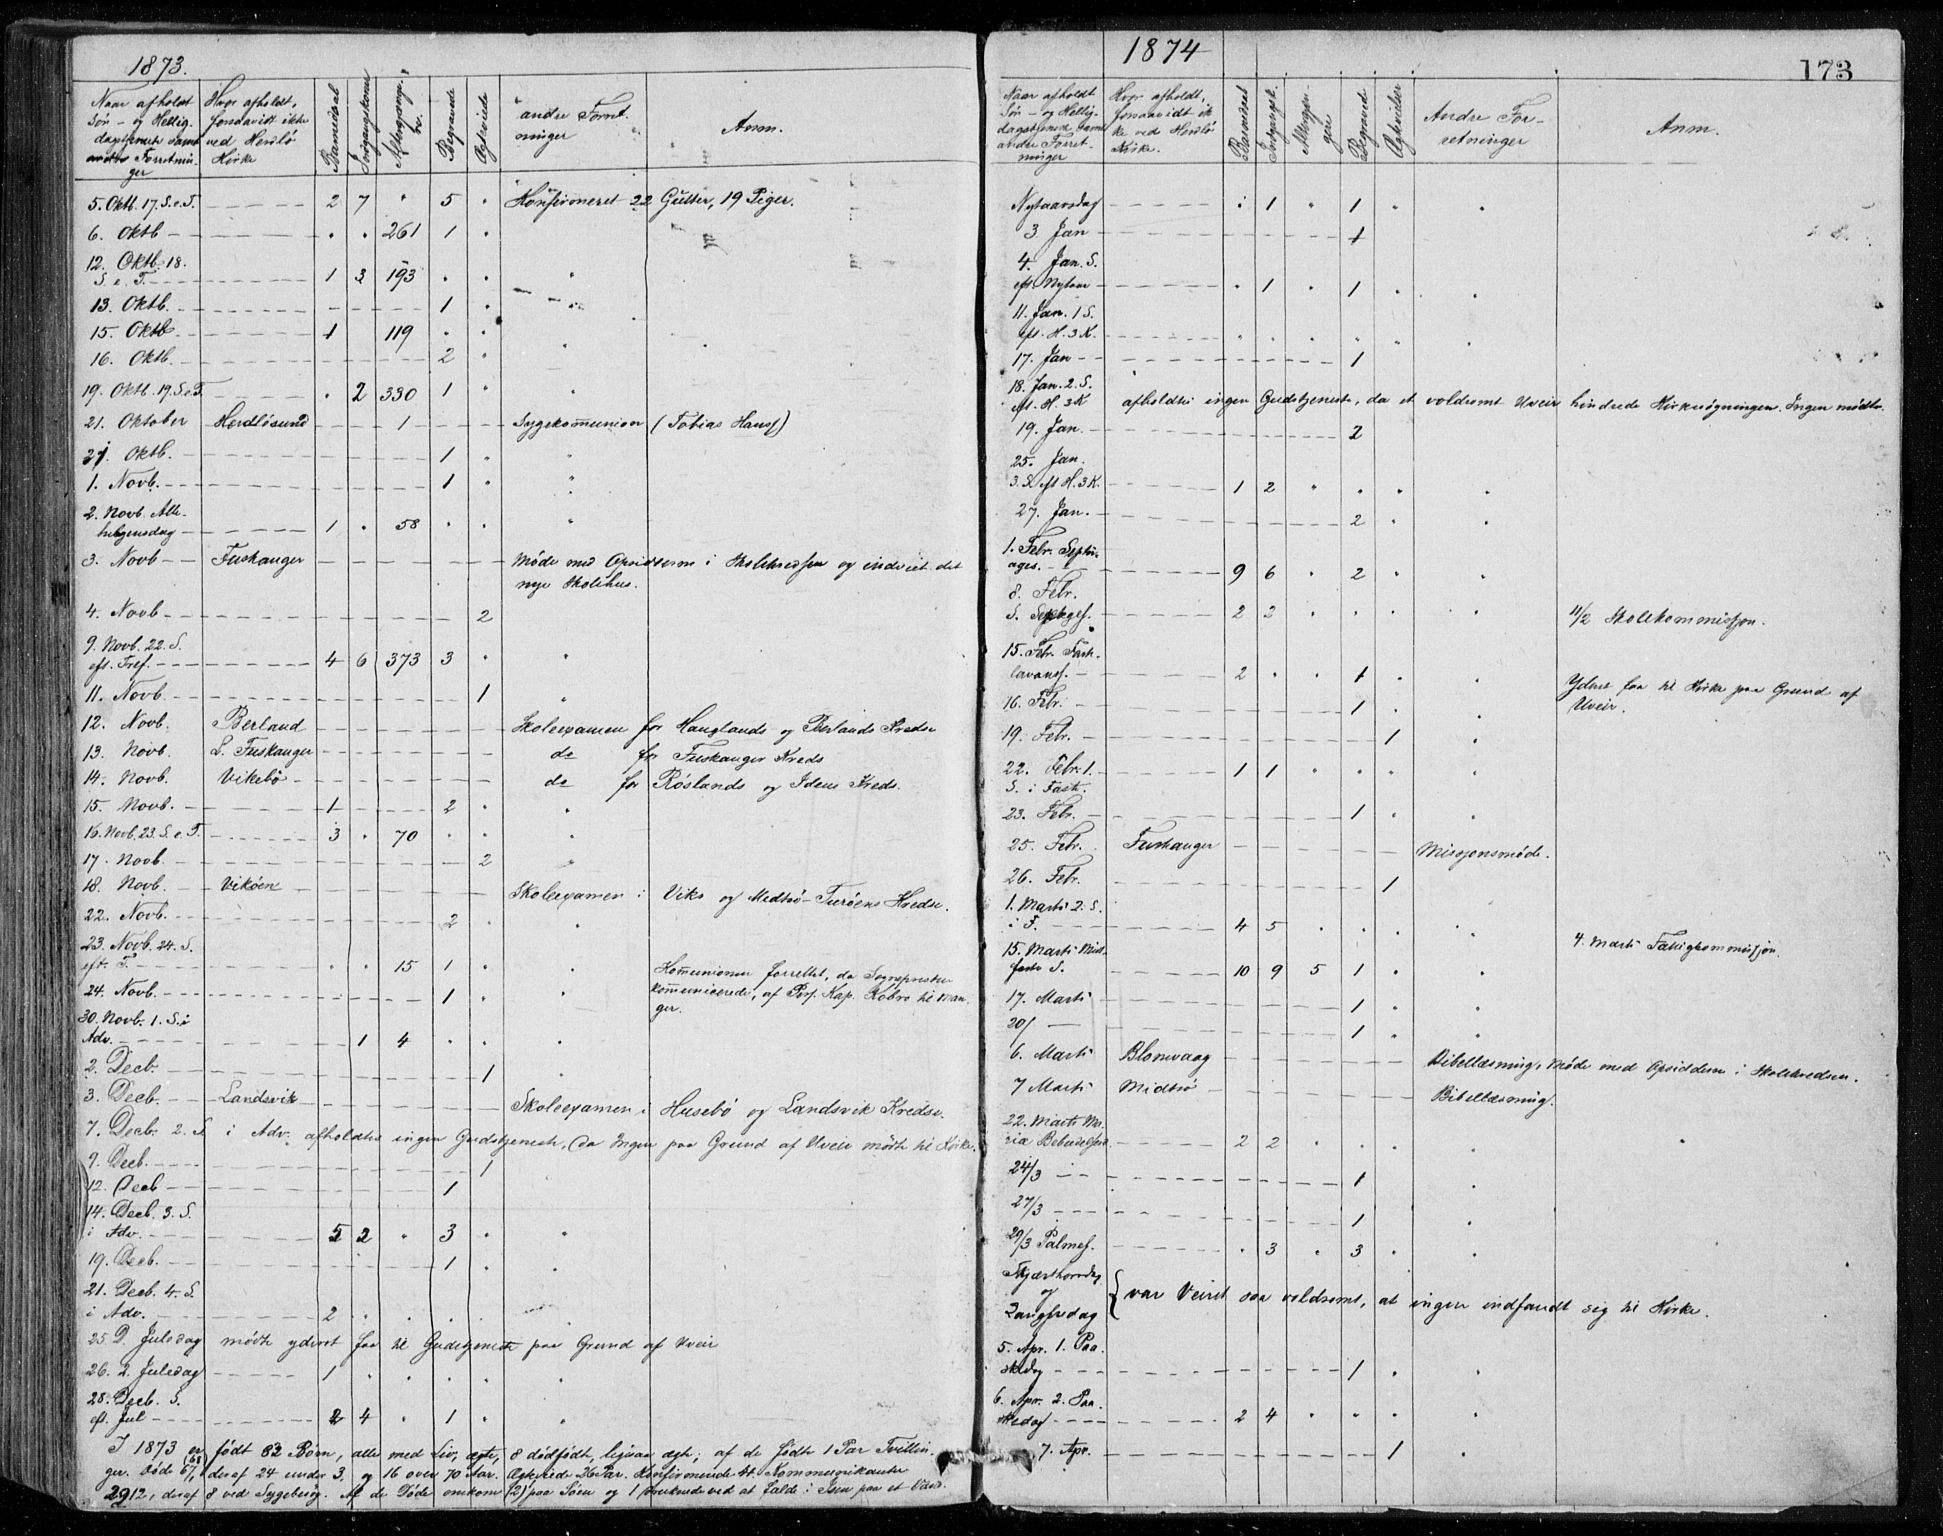 1873.
Naar afholdt Søn- og Helligdagstjeneste samt andre Forretninger
Hvor afholdt, forsaavidt ikke ved Herdlø Kirke
Barnedaab
Introngskone
Altergjængere
Begravede
Ægtviede
andre Forretninger
Anm.
5. Oktb. 17. S.e.T. 2 7 " 5 " Konfirmeret 22 Gutter, 19 Piger.
6. Oktb " " 261 1 "
12. Oktb. 18.
S. e. T. 1 3 193 " " "
13. Oktb. 1 "
15. Oktb 1 119 " "
16. Oktb. 2 " "
19. Oktb. 19. S.e.T. " 2 330 1 " "
21. Oktober Herdløsund 1 Sygekommunion (Tobias Hansf)
27. Oktb. 1 " "
1. Novb. 1 " "
2. Novb. Alle-
helgensdag 1 " 58 " " "
3. Novb Fuskanger Møde med Opsidderne i Skolekredsen og indviet det
nye Skolehus.
4. Novb 2
9. Novb. 22. S.
eft. Tref. 4 6 373 3 " "
11. Novb. 1 "
12. Novb. Berland Skoleexamen for Hauglands og Berlands Kredse
13. Novb. L. Fuskanger do for Fuskanger Kreds
14. Novb. Vikebø do for Røslands og Idens Kreds.
15. Novb. 1 2 " "
16. Novb. 23. S. e. T. 3 " 70 " " "
17. Novb. 2 "
18. Novb. Vikøen Skoleexamen i Viks og Medtsø-Turøens Kredse.
22. Novb. 2 " "
23. Novb. 24. S.
eft. T. " " 15 1 " " Kommunionen forrettet, da Sognepresten
24. Novb. 1 " " kommunicerede, af Pers. Kap. Kobro til Man-
ger.
30. Novb. 1. S. i
Adv. 1 4 " " "
2. Decb. 1 "
3. Decb. Landsvik Skoleexamen i Husebø og Landsvik Kredse.
7. Decb. 2. S. i Adv. afholdtes ingen Gudstjeneste, da Ingen paa Grund af Uveir mødte til Kirke.
9. Decb. 1
12. Decb 1
14. Decb. 3. S.
i Adv. 5 2 " 3 " "
19. Decb. 1 " "
21. Decb. 4. S.
i Adv. 2 " " " " "
25. D. Juledag mødte yderst faa til Gudstjeneste paa Grund af Uveir
26. 2. Juledag 1 " " " " "
28. Decb. S.
ef. Jul 2 4 " 1 " "
I 1873 er født 83 Børn, alle med Liv, ægte, 8 dødfødt, ligesaa ægte; af de fødte 1 Par Tvillin-
ger. Døde 67, (68) deraf 24 under 3, og 16 over 70 Aar. Ægteviede 26 Par. Konfirmerede 41. Kommunikanter
2912, deraf 8 ved Sygebesøg. Af de Døde omkom (2) paa Søen og 1 druknede ved at falde i Isen paa et Vand.
1874
173
Naar afholdt Søn- og Helligdagstjeneste samt andre Forretninger
Hvor afholdt, forsaavidt ikke ved Herdlø Kirke.
Barnedaab
Intrgsk.
Altergjængere
Begraved
Ægtviede
Andre Forretninger
Anm.
Nytaarsdag " 1 " 1 " "
3. Jan 1
4. Jan. S.
eft. Nytaar " 1 " 1 " "
11. Jan. 1 S.
eft. H. 3 K. " " " " " "
17. Jan 1
18. Jan. 2. S.
eft. H. 3 K afholdtes ingen Gudstjeneste, da et voldsomt Uveir hindrede Kirkesøgningen. Ingen mødte.
19. Jan. 2
25. Jan.
3. S. eft H. 3 K. 1 2 " " " "
27. Jan. 2 " "
1. Febr. Septu-
ages. 9 6 " 2 " "
8. Febr.
S. Sexages. 2 2 " " " " 11/2 Skolekommissjon.
15. Febr. Fast-
lavens. 2 " " 1 " " Yderst faa til Kirke paa Grund af
16. Febr. 1 " " Uveir.
19. Febr. 1 "
22. Febr. 1.
S. i Fast. 1 1 " " " "
23. Febr. 1 " "
25. Febr. Fuskanger Missjonsmøde.
26. Febr. 1
1. Marts 2. S.
i F. 4 5 " " " " 4. Marts Fattigkommissjon.
15. Marts Mid-
faste S. 10 9 5 1 " "
17. Marts 1 " "
20/ — 1 " "
6. Marts Blomvaag Bibellæsning, Møde med Opsidderne i Skolekredsen.
7 Marts Midtsø Bibellæsning.
22. Marts Ma-
ria Bebudelses 2 2 " " " "
24/3 1 "
27/3 1 "
29/3 Palmes. " 3 " 3 " "
Skjærthorsdag
og
Langfredag { var Veiret saa voldsomt, at ingen indfandt sig til Kirke.
5. Apr. 1. Paa-
skedag 1 " "
6. Apr. 2. Paa-
skedag 2 4 " " " "
7. Apr. 1 "